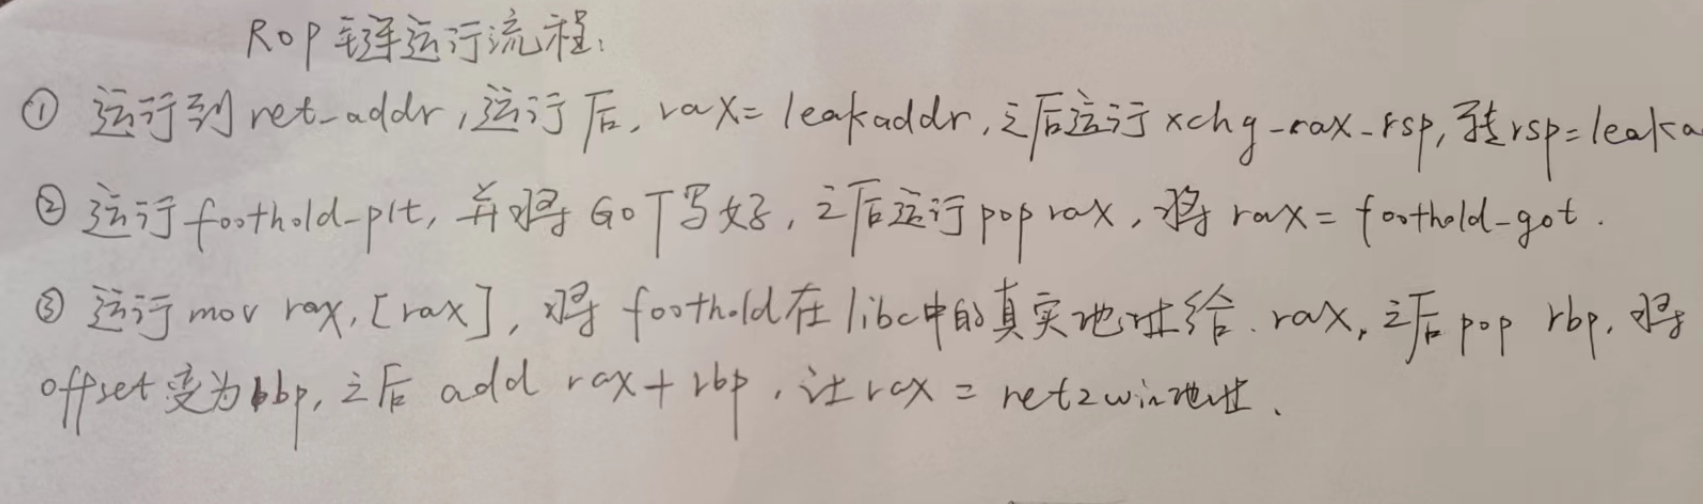 ROP链运行流程:
① 运行到ret-addr,运行后,rax=leakaddr,之后运行xchg-rax-rsp,转rsp=leaka
② 运行foothold-plt,并将GOT写好,之后运行pop rax,将rax=foothold-got.
③ 运行mov rax,[rax],将foothold在libc中的真实地址给.rax,之后pop rbp,将
offset变为rbp,之后add rax+rbp,让rax=ret2win地址、